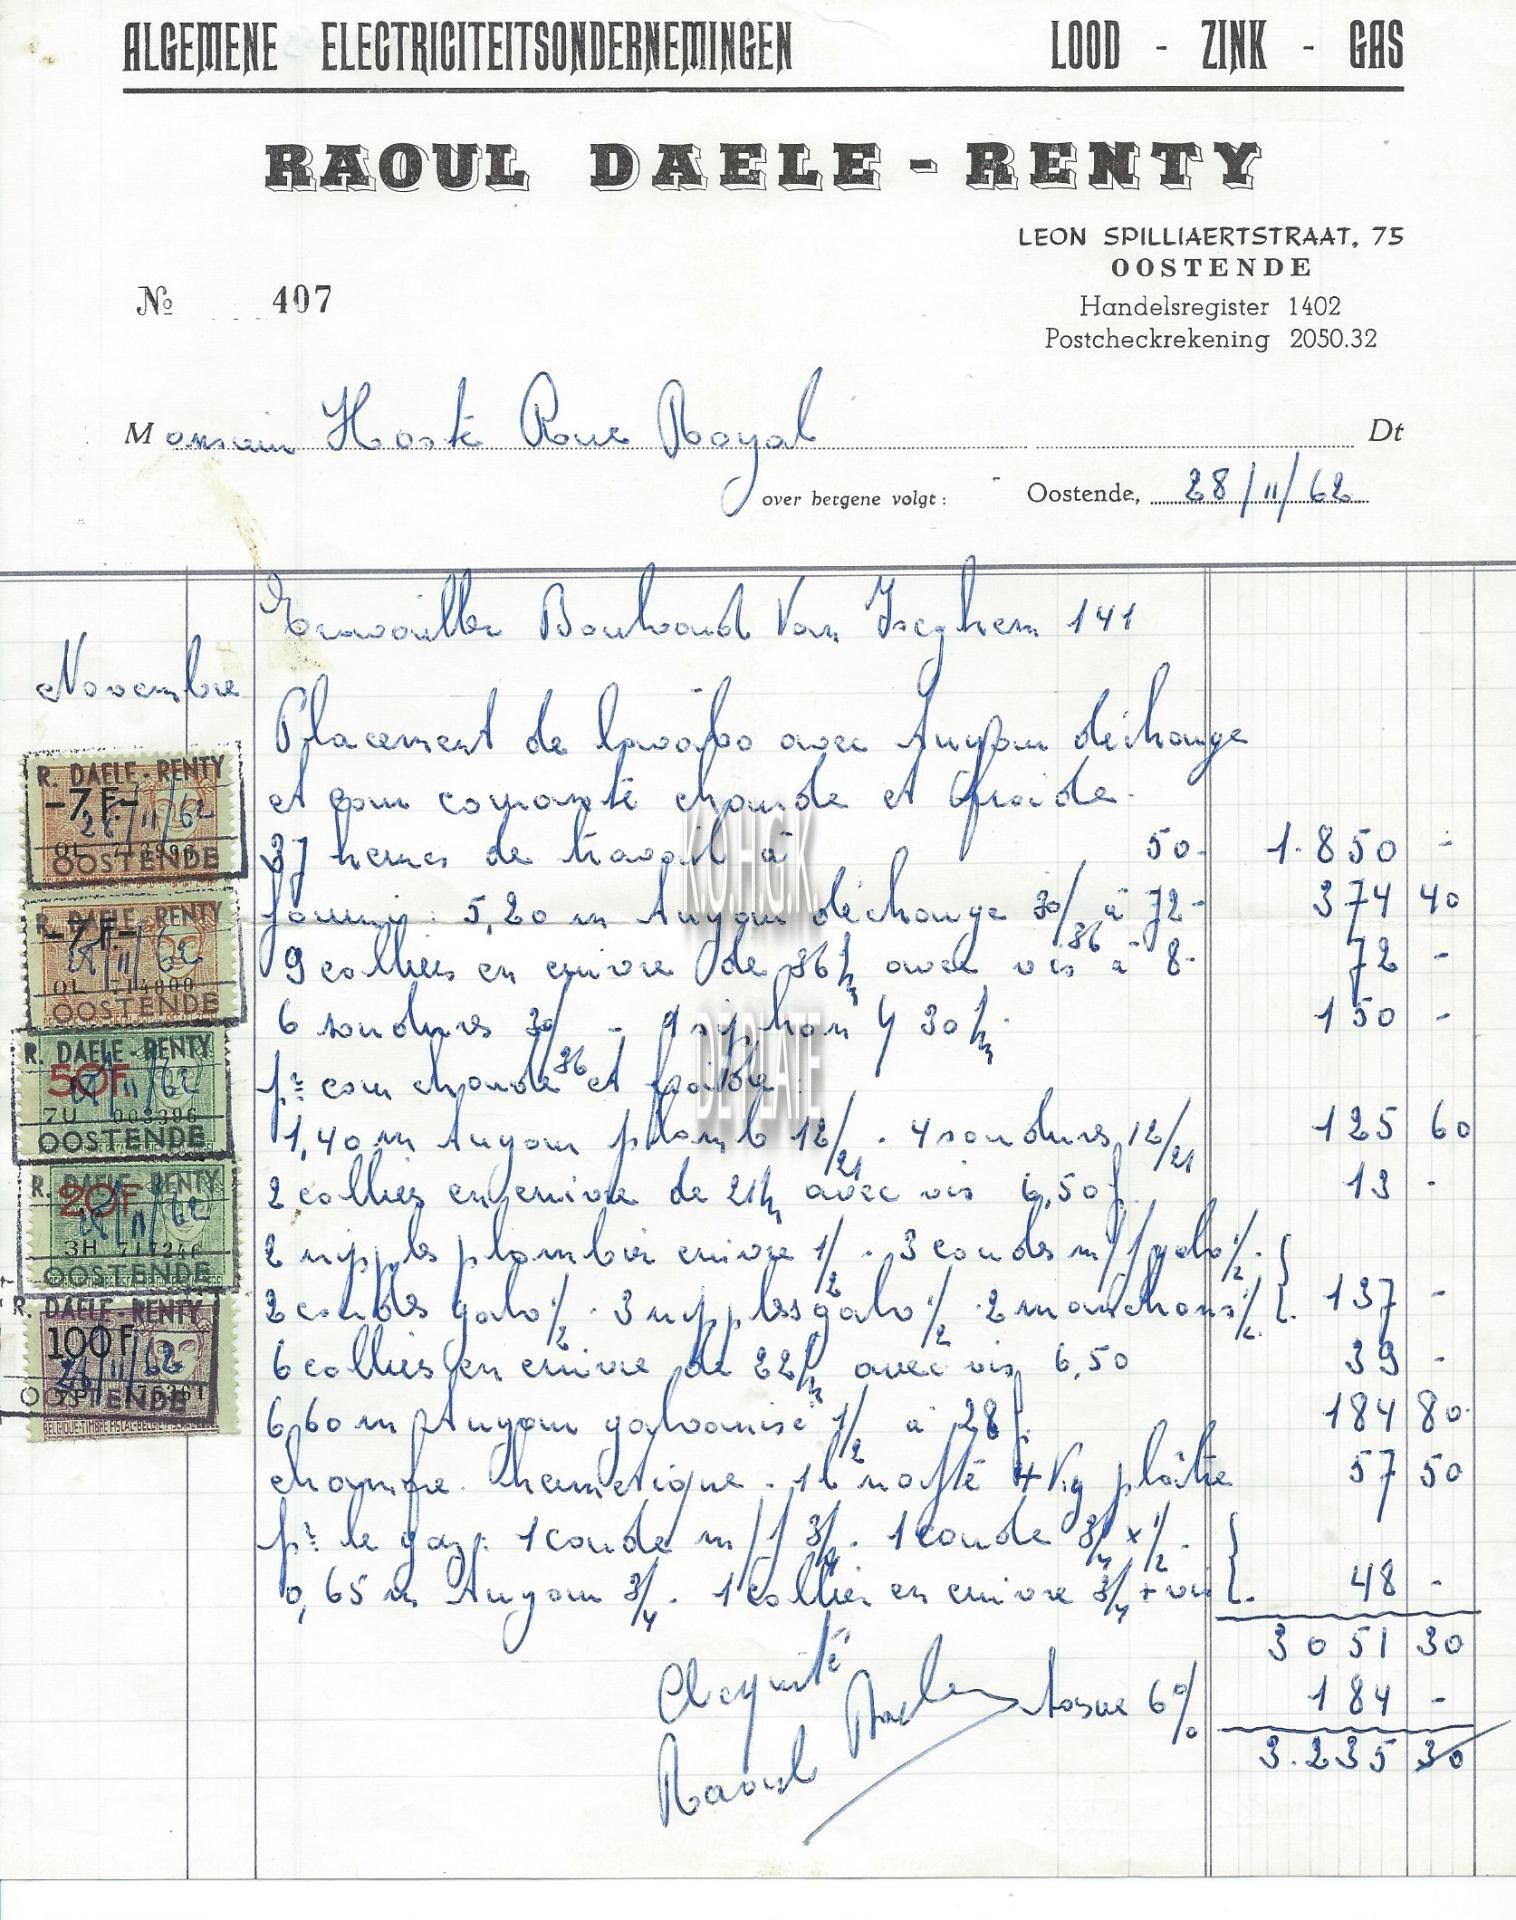 ALGEMENE ELECTRICITEITSONDERNEMINGEN LOOD - ZINK - GAS
RAOUL DAELE - RENTY
LEON SPILLIAERTSTRAAT, 75
OOSTENDE
Handelsregister 1402
Postcheckrekening 2050.32
№ 407
Monsieur Hosté Rue Royal Dt
over hetgene volgt :
Oostende, 28/11/62
Travailler Boulvard Van Iseghem 141
Novembre
Placement de lavabo avec tuyau déchange
et eau couranté chaude et froide.
37 heures de travail à 50- 1.850 -
fourni : 5,20 m tuyau déchange 30/36 à 72- 374 40
9 colliers en cuivre de 36 m/m avec vis à 8- 72 -
6 soudures 30/36 - 1 siphon 30 m/m. 150 -
pr eau chaude et froide :
1,40 m tuyau plomb 12/21 . 4 soudures 12/21 125 60
2 colliers en cuivre de 21 m/m avec vis 6,50 f. 13 -
2 nipples plombier cuivre 1/2 . 3 coudes m/f galv 1/2.
2 coudes galv 1/2 . 3 nippless galv 1/2 . 2 manchons 1/2. 137 -
6 colliers en cuivre de 22 m/m avec vis 6,50 39 -
6,60 m tuyau galvanisé 1/2 à 28 f. 184 80.
chanfre hermetique . 1 l nafté 4 Kg plâtre 57 50
pr le gaz : 1 coude m/f 3/4 . 1 coude 3/4 x 1/2.
0,65 m tuyau 3/4 . 1 collier en cuivre 3/4 + vis . 48 -
3051 30
taxe 6% 184 -
3.235 30
Acquité
Raoul Daele
R. DAELE - RENTY
-7 F.-
28/11/62
OOSTENDE
R. DAELE - RENTY
-7 F.-
28/11/62
OL 714000
OOSTENDE
R. DAELE - RENTY
50F.
28/11/62
7U 003396
OOSTENDE
R. DAELE - RENTY
20F.
28/11/62
3H 717246
OOSTENDE
R. DAELE - RENTY
100F.
28/11/62
OOSTENDE
BELGIQUE-TIMBRE FISCAL-BELGIË
K.O.H.G.K.
DE PLATE